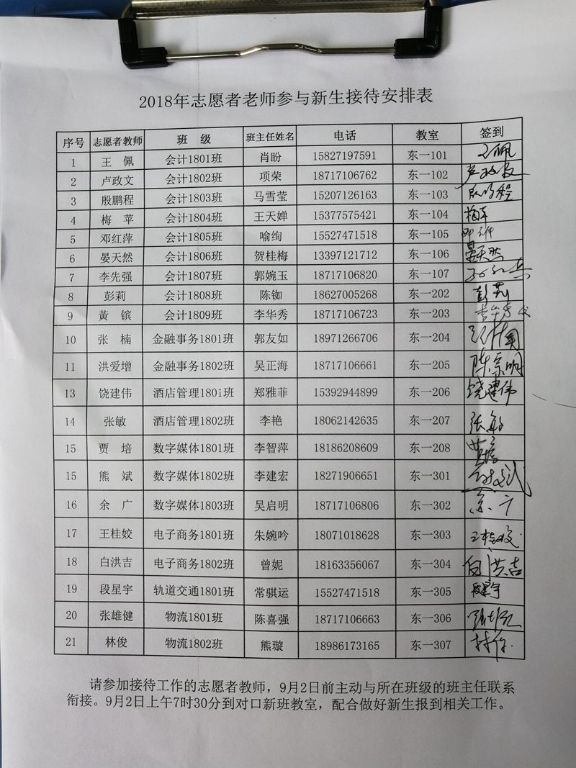 2018年志愿者老师参与新生接待安排表
序号 志愿者教师 班 级 班主任姓名 电话 教室 签到
1 王 佩 会计1801班 肖盼 15827197591 东一101 王佩
2 卢政文 会计1802班 项荣 18717106762 东一102
3 殷鹏程 会计1803班 马雪莹 15207126163 东一103
4 梅 苹 会计1804班 王天婵 15377575421 东一104
5 邓红萍 会计1805班 喻绚 15527471518 东一105
6 晏天然 会计1806班 贺桂梅 13397121712 东一106 晏天然
7 李先强 会计1807班 郭婉玉 18717106820 东一107
8 彭莉 会计1808班 陈铷 18627005268 东一202 彭莉
9 黄 镔 会计1809班 李华秀 18717106723 东一203
10 张 楠 金融事务1801班 郭友如 18971266706 东一204
11 洪爱增 金融事务1802班 吴正海 18717106661 东一205
13 饶建伟 酒店管理1801班 郑雅菲 15392944899 东一206 饶建伟
14 张敏 酒店管理1802班 李艳 18062142635 东一207 张敏
15 贾 培 数字媒体1801班 李智萍 18186208609 东一208
15 熊 斌 数字媒体1802班 李建宏 18271906651 东一301
16 余 广 数字媒体1803班 吴启明 18717106806 东一302 余广
17 王桂姣 电子商务1801班 朱婉吟 18071018628 东一303 王桂姣
18 白洪吉 电子商务1802班 曾妮 18163356067 东一304 白洪吉
19 段星宇 轨道交通1801班 常骐运 15527471518 东一305
20 张雄健 物流1801班 陈喜强 18717106663 东一306
21 林俊 物流1802班 熊璇 18986173165 东一307 林俊
请参加接待工作的志愿者教师，9月2日前主动与所在班级的班主任联系
衔接。9月2日上午7时30分到对口新班教室，配合做好新生报到相关工作。